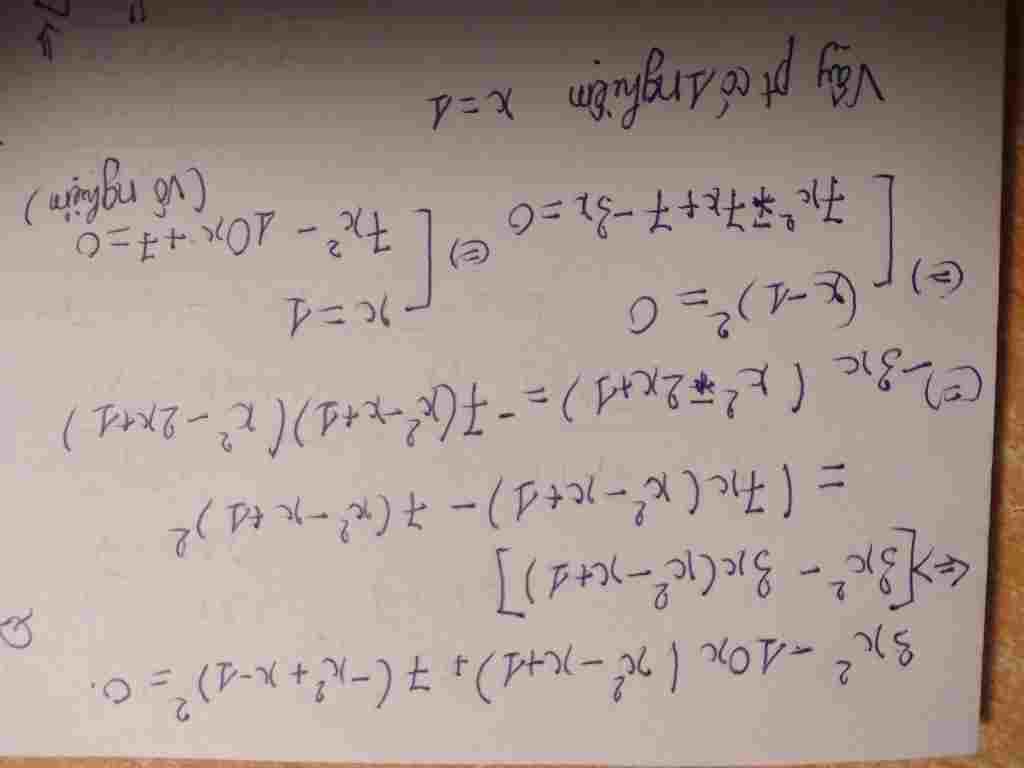 3x² - 10x (x² - x + 1) + 7(-x² + x - 1)² = 0.
<=> [3x² - 3x(x² - x + 1)]
= (7x(x² - x + 1) - 7(x² - x + 1)²
(=) -3x (x² - 2x + 1) = -7(x² - x + 1)(x² - 2x + 1)
(=) [ (x - 1)² = 0
7x² - 7x + 7 - 3x = 0
(=) [ x = 1
7x² - 10x + 7 = 0
(vô nghiệm)
Vậy pt có 1 nghiệm x = 1